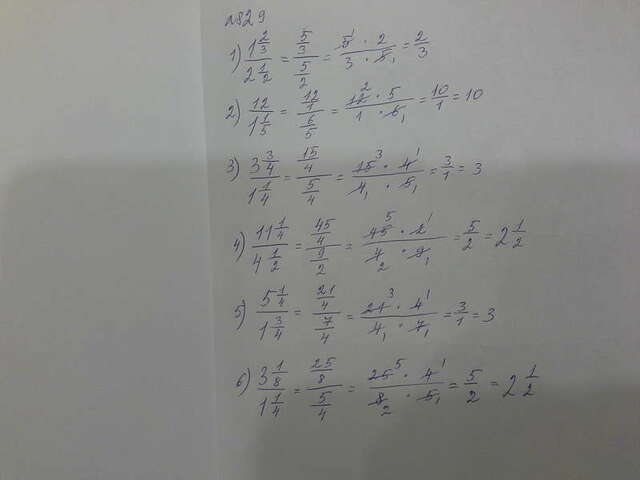 №829
1) 1 2/3 / 2 1/2 = 5/3 / 5/2 = 5 1 · 2 / 3 · 5 1 = 2/3
2) 12 / 1 1/5 = 12/1 / 6/5 = 12 2 · 5 / 1 · 6 1 = 10/1 = 10
3) 3 3/4 / 1 1/4 = 15/4 / 5/4 = 15 3 · 4 1 / 4 1 · 5 1 = 3/1 = 3
4) 11 1/4 / 4 1/2 = 45/4 / 9/2 = 45 5 · 2 1 / 4 2 · 9 1 = 5/2 = 2 1/2
5) 5 1/4 / 1 3/4 = 21/4 / 7/4 = 21 3 · 4 1 / 4 1 · 7 1 = 3/1 = 3
6) 3 1/8 / 1 1/4 = 25/8 / 5/4 = 25 5 · 4 1 / 8 2 · 5 1 = 5/2 = 2 1/2